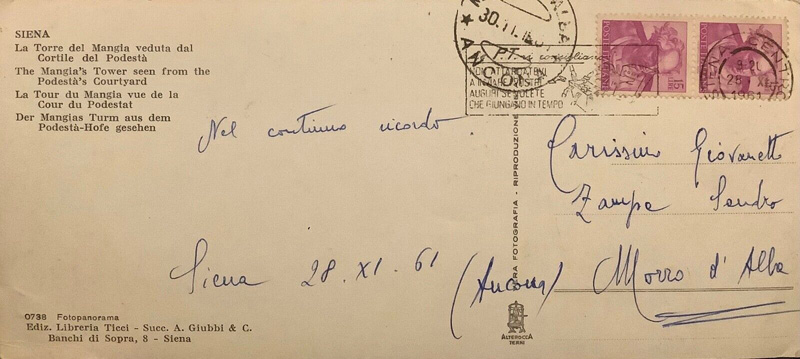 SIENA
La Torre del Mangia veduta dal
Cortile del Podestà
The Mangia's Tower seen from the
Podestà's Courtyard
La Tour du Mangia vue de la
Cour du Podestat
Der Mangias Turm aus dem
Podestà-Hofe gesehen
Nel continuo ricordo
Siena 28. XI. 61
0738 Fotopanorama
Ediz. Libreria Ticci - Succ. A. Giubbi & C.
Banchi di Sopra, 8 - Siena
ALBA
30.11.
P.T.
NON ATTARDATEVI
AUGURI SE VOLETE
CHE GIUNGANO IN TEMPO
SIENA CENTRO
28 XI
1961
FOTOGRAFIA - RIPRODUZIONE
ALTEROCCA
TERNI
Carissimi Giovanetti
Zampa Sandro
(Ancona) Morro d'Alba